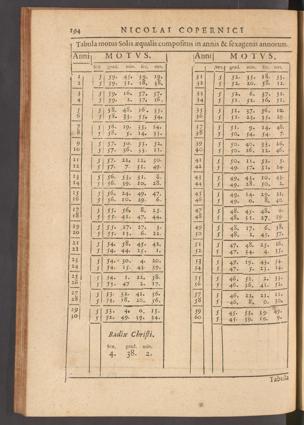 194 NICOLAI COPERNICI
Tabula motus Solis æqualis compositus in annis & sexagenis annorum.
Anni MOTVS. Anni MOTVS.
sex. grad. min. sec. ter. sex. grad. min. sec. ter.
1 5 59. 45. 39. 19. 31 5 52. 35. 18. 53.
2 5 59. 31. 18. 38. 32 5 52. 20. 58. 12.
3 5 59. 16. 57. 57. 33 5 52. 6. 37. 31.
4 5 59. 2. 37. 16. 34 5 51. 52. 16. 51.
5 5 58. 48. 16. 35. 35 5 51. 37. 56. 10.
6 5 58. 33. 55. 54. 36 5 51. 23. 35. 29.
7 5 58. 19. 35. 14. 37 5 51. 9. 14. 48.
8 5 58. 5. 14. 33. 38 5 50. 54. 54. 7.
9 5 57. 50. 53. 52. 39 5 50. 40. 33. 26.
10 5 57. 36. 33. 11. 40 5 50. 26. 12. 46.
11 5 57. 22. 12. 30. 41 5 50. 11. 52. 5.
12 5 57. 7. 51. 49. 42 5 49. 57. 31. 24.
13 5 56. 53. 31. 8. 43 5 49. 43. 10. 43.
14 5 56. 39. 10. 28. 44 5 49. 28. 50. 2.
15 5 56. 24. 49. 47. 45 5 49. 14. 29. 21.
16 5 56. 10. 29. 6. 46 5 49. 0. 8. 40.
17 5 55. 56. 8. 25. 47 5 48. 45. 48. 0.
18 5 55. 41. 47. 44. 48 5 48. 31. 27. 19.
19 5 55. 27. 27. 3. 49 5 48. 17. 6. 38.
20 5 55. 13. 6. 22. 50 5 48. 2. 45. 57.
21 5 54. 58. 45. 42. 51 5 47. 48. 25. 16.
22 5 54. 44. 25. 1. 52 5 47. 34. 4. 35.
23 5 54. 30. 4. 20. 53 5 47. 19. 43. 54.
24 5 54. 15. 43. 39. 54 5 47. 5. 23. 14.
25 5 54. 1. 22. 58. 55 5 46. 51. 2. 33.
26 5 53. 47. 2. 17. 56 5 46. 36. 41. 52.
27 5 53. 32. 41. 36. 57 5 46. 22. 21. 11.
28 5 53. 18. 20. 56. 58 5 46. 8. 0. 30.
29 5 53. 4. 0. 15. 59 5 45. 53. 39. 49.
30 5 52. 49. 39. 34. 60 5 45. 39. 19. 9.
Radix Christi.
sex. grad. min.
4. 38. 2.
Tabula